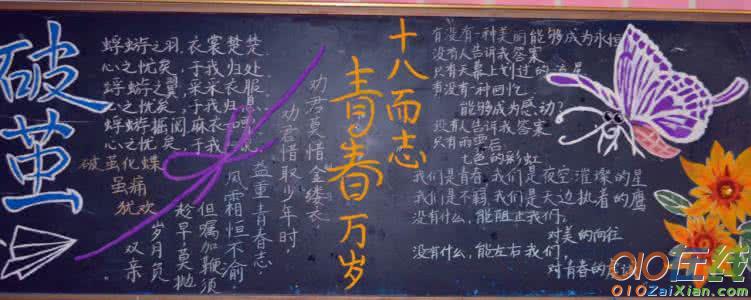 破茧
蜉蝣之羽，衣裳楚楚
心之忧矣，于我归处
蜉蝣之翼，采采衣服
心之忧矣，于我归息
蜉蝣掘阅，麻衣
心之忧矣，于我归
破茧化蝶
虽痛
犹欢
劝君莫惜金缕衣
劝君惜取少年时，
益重青春志
风霜恒不渝
但嘱加鞭须
趁早莫抛
岁月负
双亲
十八而志
青春万岁
有没有一种美丽能够成为永恒
没有人告诉我答案
只有天幕上划过的流星
有没有一种回忆
能够成为感动?
没有人告诉我答案
只有雨雪后
七色的彩虹
我们是青春,我们是夜空璀璨的星
我们是不羁,我们是天边执着的鹰
没有什么,能阻止我们,
对美的向往
没有什么，能左右我们，
对青春的
010在线
010ZaiXian.com